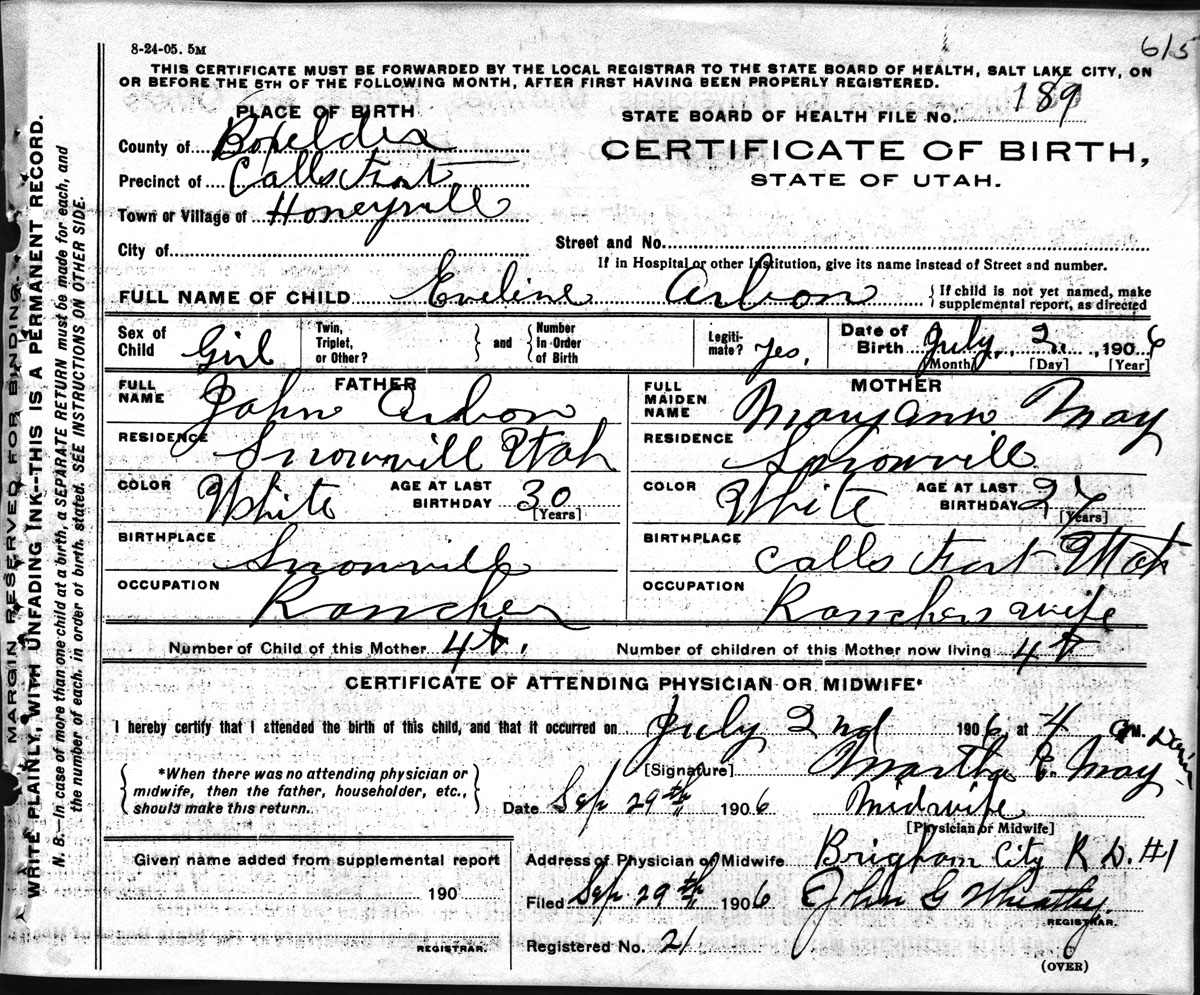 8-24-05. 5M
615
THIS CERTIFICATE MUST BE FORWARDED BY THE LOCAL REGISTRAR TO THE STATE BOARD OF HEALTH, SALT LAKE CITY, ON
OR BEFORE THE 5TH OF THE FOLLOWING MONTH, AFTER FIRST HAVING BEEN PROPERLY REGISTERED.
PLACE OF BIRTH
STATE BOARD OF HEALTH FILE No. 189
County of Boxelder
CERTIFICATE OF BIRTH,
Precinct of Calls Fort
STATE OF UTAH.
Town or Village of Honeyvill
City of
Street and No.
If in Hospital or other Institution, give its name instead of Street and number.
FULL NAME OF CHILD Eveline Arbon { If child is not yet named, make
supplemental report, as directed
Sex of Child Girl
Twin, Triplet, or Other? } and { Number In Order of Birth
Legiti-mate? Yes,
Date of Birth July, 2, 1906
[Month] [Day] [Year]
FATHER
FULL NAME John Arbon
RESIDENCE Snowvill Utah
COLOR White AGE AT LAST BIRTHDAY 30
[Years]
BIRTHPLACE Snowville
OCCUPATION Rancher
MOTHER
FULL MAIDEN NAME Maryann May
RESIDENCE Snowvill
COLOR White AGE AT LAST BIRTHDAY 27
[Years]
BIRTHPLACE Calls Fort Utah
OCCUPATION Ranchers wife
Number of Child of this Mother 4t. Number of children of this Mother now living 4t
CERTIFICATE OF ATTENDING PHYSICIAN OR MIDWIFE*
I hereby certify that I attended the birth of this child, and that it occurred on July 2nd 1906, at 4 M.
{ *When there was no attending physician or
midwife, then the father, householder, etc.,
should make this return. }
[Signature] Martha E. May
Date Sep 29th 1906 Midwife
[Physician or Midwife]
Given name added from supplemental report
190
REGISTRAR.
Address of Physician or Midwife Brigham City R D. #1
Filed Sep 29th 1906 John G Wheatley.
REGISTRAR.
Registered No. 21
(OVER)
MARGIN RESERVED FOR BINDING
WRITE PLAINLY, WITH UNFADING INK—THIS IS A PERMANENT RECORD.
N. B.—In case of more than one child at a birth, a SEPARATE RETURN must be made for each, and
the number of each, in order of birth, stated. SEE INSTRUCTIONS ON OTHER SIDE.